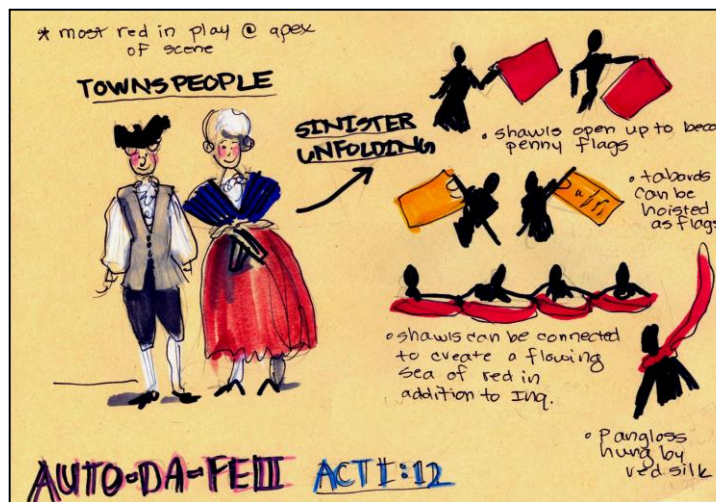 * most red in play @ apex
of scene
TOWNSPEOPLE
SINISTER
UNFOLDING
• shawls open up to beco
penny flags
• tabards
can be
hoisted
as flags
• shawls can be connected
to create a flowing
sea of red in
addition to Inq.
• Pangloss
hung by
red silk
AUTO-DA-FE ACT I:12